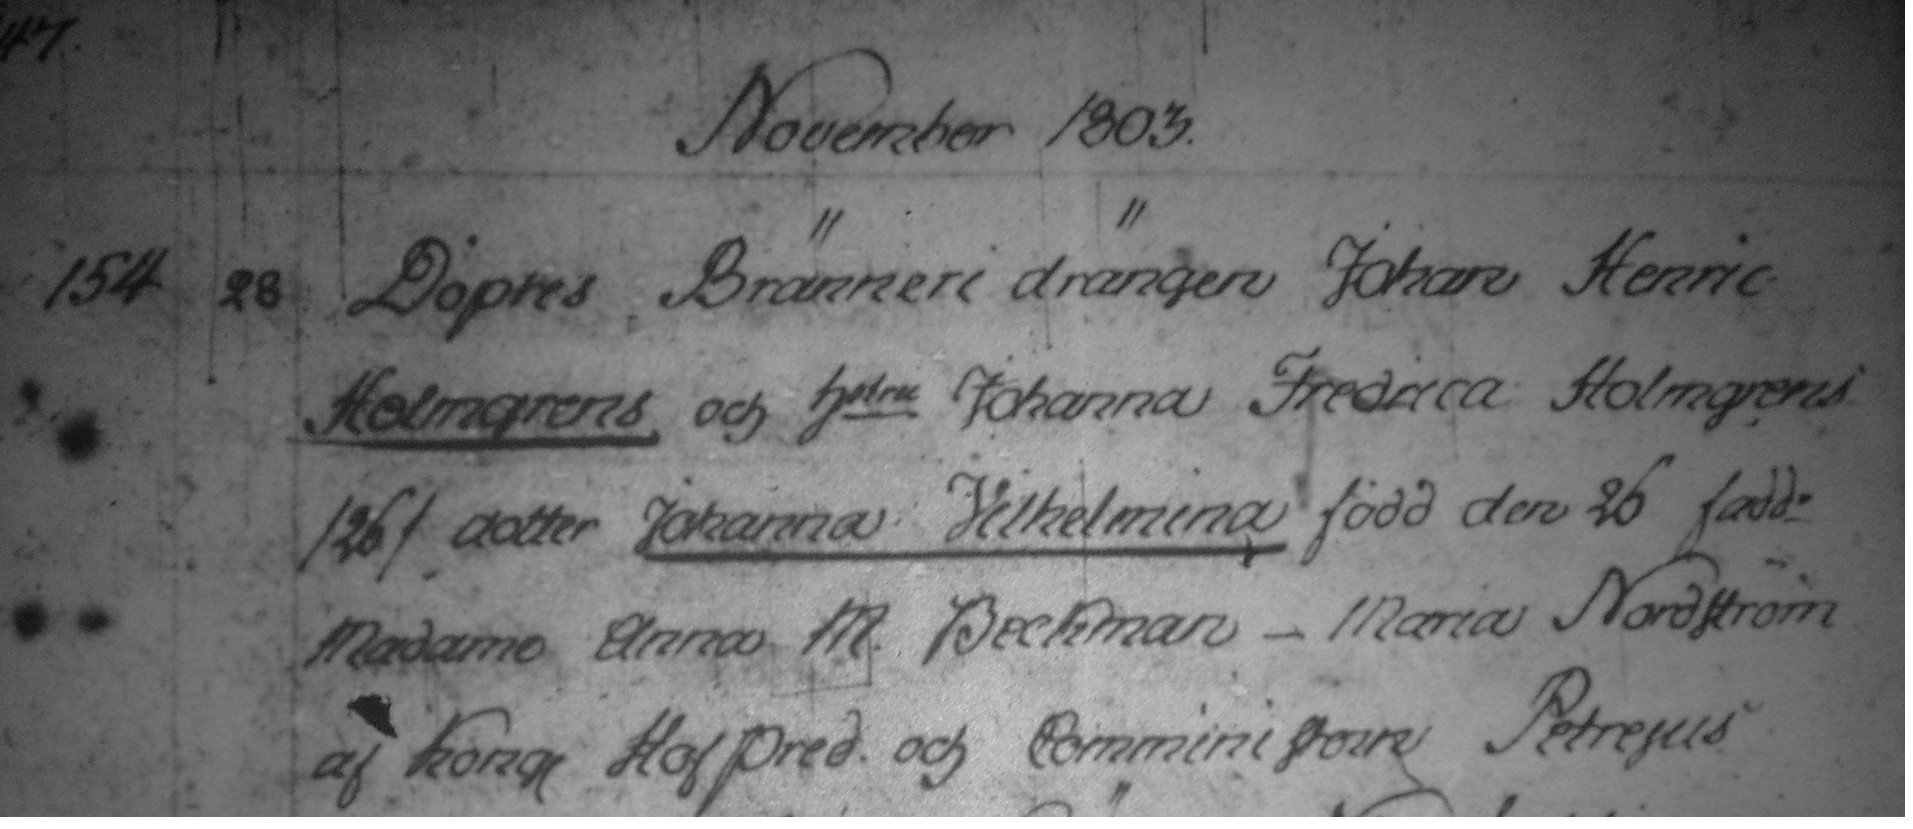 47.
November 1803.
" "
154 28 Döptes Bränneri drängen Johan Henric
Holmgrens och hustru Johanna Fredrica Holmgrens
/26/ dotter Johanna Vilhelmina född den 26 fadd:
Madame Anna M. Beckman – Maria Nordström
af kong Hof pred. och Comministern Petrejus